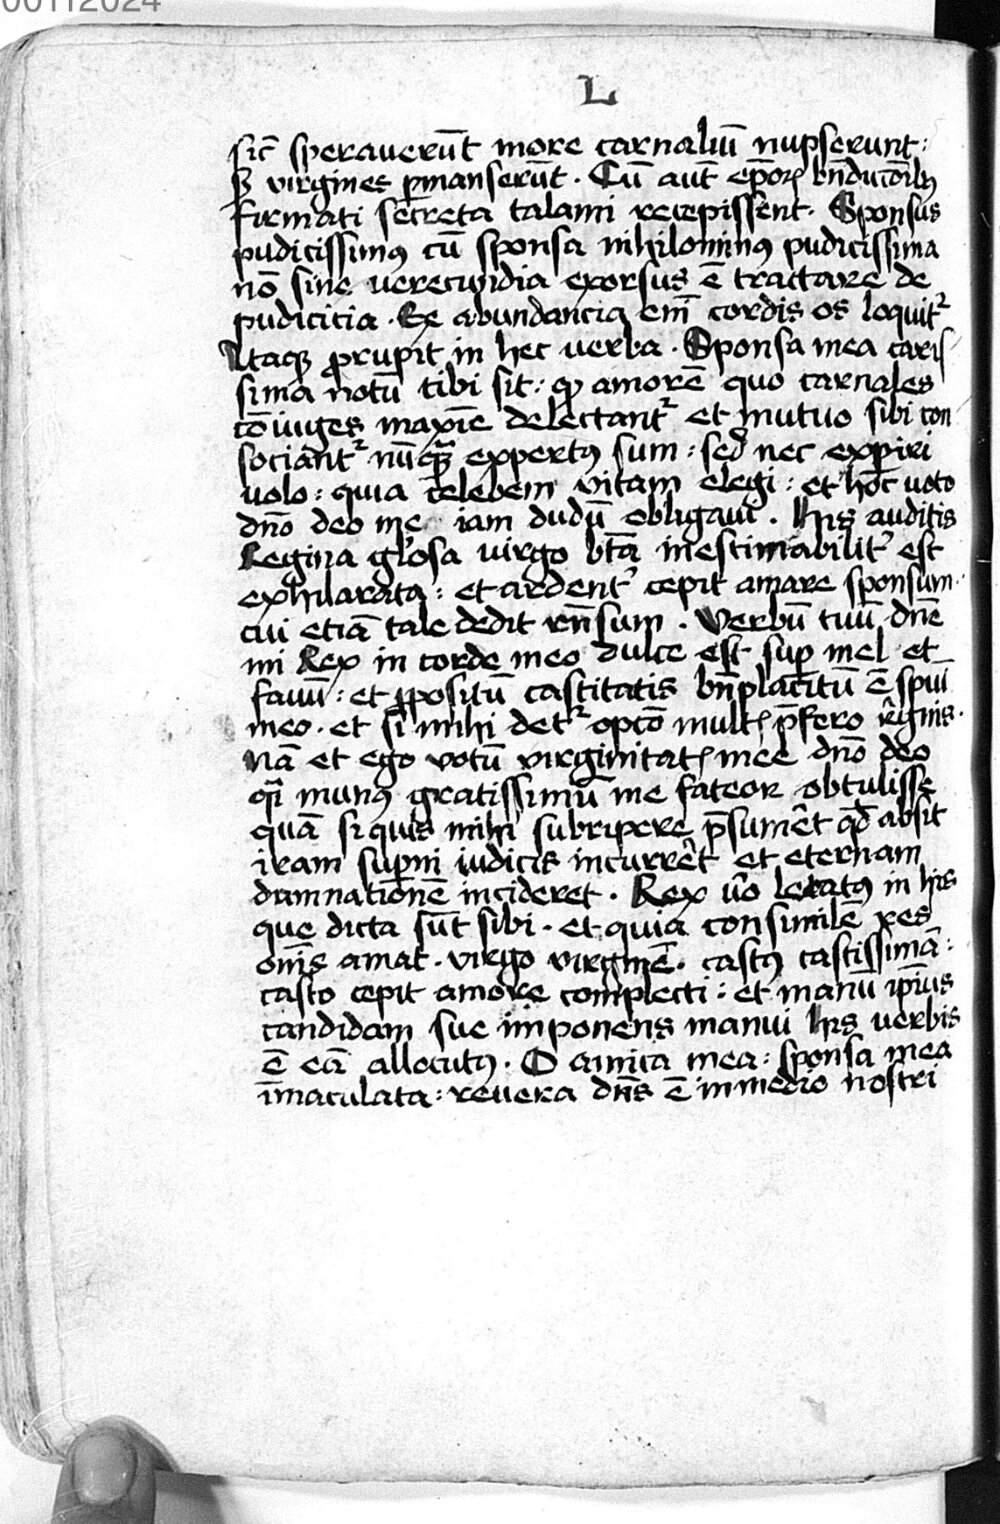 00112024
L
sic̄ speraverūt more carnaliū nupserunt :
sꝫ virgines ꝑmanserūt . Cū aūt ep̄oꝝ bn̄dictōībꝯ
firmati secreta talami recepissent . Sponsus
pudicissimꝯ cū sponsa nihilominꝯ pudicissima
nō sine verecundia exorsus ē tractare de
pudicicia . Ex abundancia em̄ cordis os loquitᷣ
Itaqꝫ ꝓrupit in hec verba . Sponsa mea caris
sima notū tibi sit : ꝙ amorē quo carnales
cōiuges maxīe delectantᷣ et mutuo sibi con
sociantᷣ nūqᷓꝫ expertꝯ sum : sed nec exꝑiri
volo : quia celebem vitam elegi : et hoc voto
dn̄o deo me iam dudū obligavi . His auditis
Regina gl̓osa virgo btā inestimabilit̓ est
exhilarata : et ardent̓ cepit amare sponsum .
cui etiā tale dedit rn̄sum . Verbū tuū dn̄e
mi Rex in corde meo dulce est suꝑ mel et
favū : et ꝓpositū castitatis bn̄placitū ē spūi
meo . et si mihi detᷣ optō multꝭ p̄fero rēgnis .
Nā et ego votū virginitatꝭ mee dn̄o deo
qᷓi munꝯ gratissimū me fateor obtulisse
quā si quis mihi subripere p̄sumēt qd̄ absit
iram suꝑni iudicis incurrēt et eternam
damnationē incideret . Rex v̄o letatꝯ in his
que dicta sūt sibi . et quia consimilē res
om̄is amat . virgo virginē . castꝯ castissimā :
casto cepit amore complecti : et manū ip̄ius
candidam sue imponens manui his verbis
ē eā allocutꝯ . O amica mea : sponsa mea
īmaculata : revera dn̄s ē in medio nostri